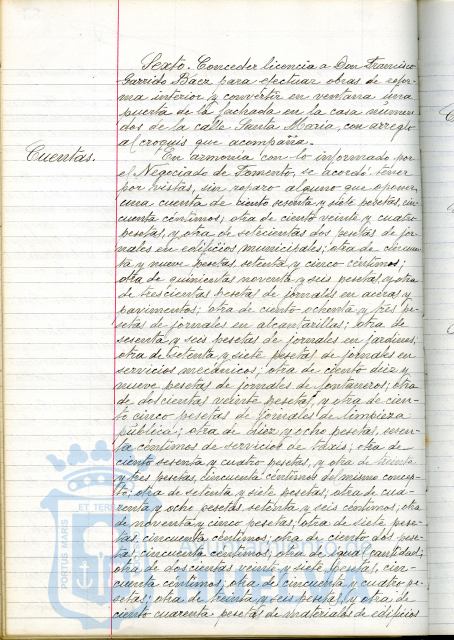 Sexto. Conceder licencia a Don Francisco
Garrido Baez para efectuar obras de refor-
ma interior y convertir en ventana una
puerta de la fachada en la casa número
dos de la calle Santa María, con arreglo
al croquis que acompaña.
Cuentas.
En armonía con lo informado por
el Negociado de Fomento, se acordó tener
por vistas, sin reparo alguno que oponer,
una cuenta de ciento sesenta y siete pesetas, cin-
cuenta céntimos; otra de ciento veinte y cuatro
pesetas, y otra de setecientas dos pesetas de jor-
nales en edificios municipales; otra de cincuen-
ta y nueve pesetas setenta y cinco céntimos;
otra de quinientas noventa y seis pesetas, y otra
de trescientas pesetas de jornales en aceras y
pavimentos; otra de ciento ochenta y tres pe-
setas de jornales en alcantarillas; otra de
sesenta y seis pesetas de jornales en jardines;
otra de setenta y siete pesetas de jornales en
servicios mecánicos; otra de ciento diez y
nueve pesetas de jornales de fontaneros; otra
de doscientas veinte pesetas, y otra de cien-
to cinco pesetas de jornales de limpieza
pública; otra de diez y ocho pesetas,
ta céntimos de servicios de taxis; otra de
ciento sesenta y cuatro pesetas, y otra de treinta
y tres pesetas, cincuenta céntimos del mismo concep-
to; otra de setenta y siete pesetas; otra de cua-
renta y ocho pesetas setenta y seis céntimos; otra
de noventa y cinco pesetas; otra de siete pese-
tas, cincuenta céntimos; otra de ciento dos pese-
tas, cincuenta céntimos; otra de igual cantidad;
otra de doscientas veinte y siete pesetas, cin-
cuenta céntimos; otra de cincuenta y cuatro pe-
setas; otra de treinta y seis pesetas, y otra de
ciento cuarenta pesetas de materiales de edificios
PORTUS MARIS ET TERRAE